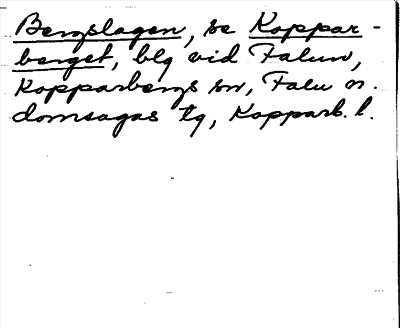 Bergslagen, se Koppar-
berget, blg vid Falun,
Kopparbergs sn, Falu n.
domsagas tg, Kopparb. l.